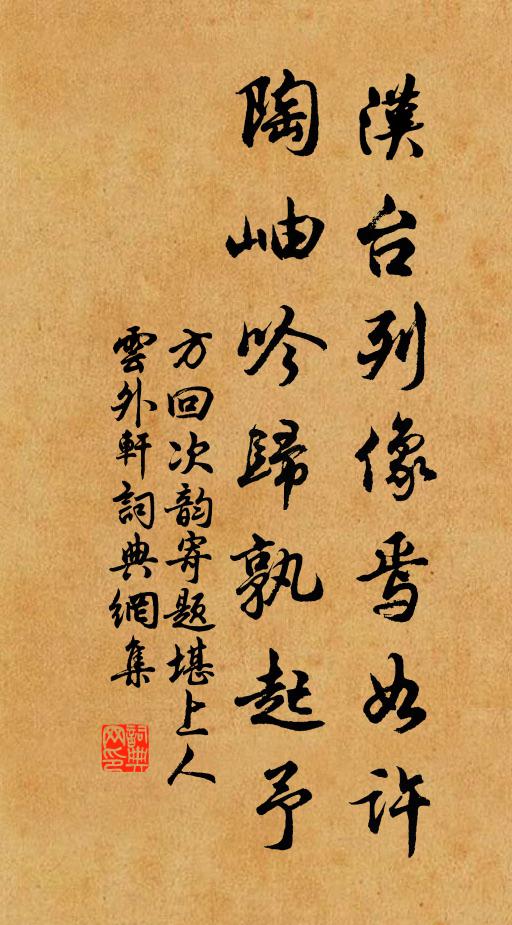 漢台列像焉如許
陶岫吟歸孰起予
方回次韵寄题堪上人
雲外軒詞典網集
詞典网印